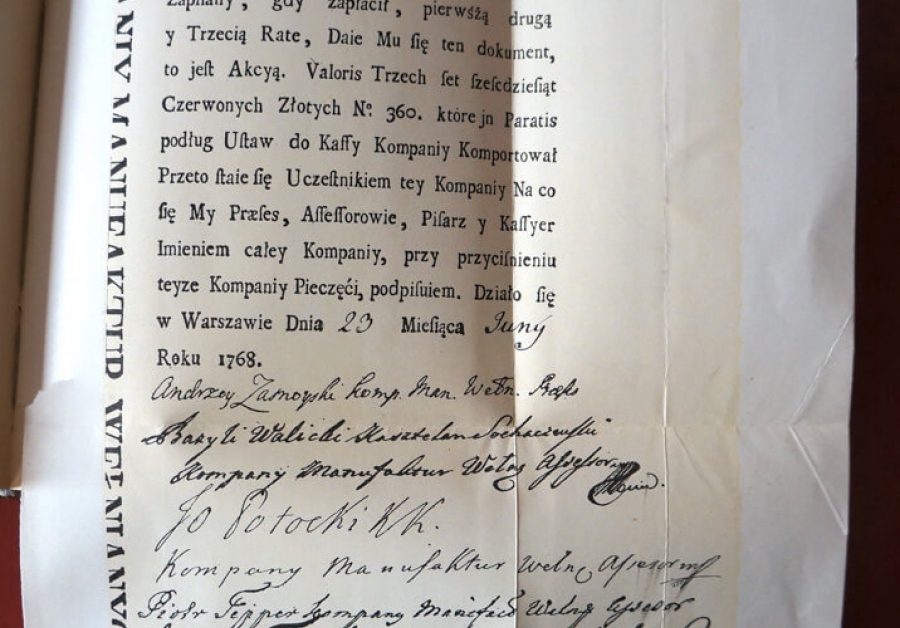 Zapisany, gdy zapłacił, pierwśżą drugą
y Trzecią Rate, Daie Mu się ten dokument,
to jeſt Akcyą. Valoris Trzech ſet ſzeſcdzieſiąt
Czerwonych Złotych Nº 360. które jn Paratis
podług Uſtaw do Kaſſy Kompaniy Komportował
Przeto ſtaie ſię Uczeſtnikiem tey Kompaniy Na co
ſię My Præſes, Aſſeſſorowie, Piſarz y Kaſſyer
Imieniem całey Kompaniy, przy przyciſnieniu
teyze Kompaniy Pieczęći, podpiſuiem. Działo ſię
w Warszawie Dnia 23 Mieſiąca Juny
Roku 1768.
Andrzey Zamoyski Komp. Man. Wełn. Præs
Bazyli Walicki Kasztelan Sochaczewski
Kompany Manufaktur Wełny Assessor
Jo Potocki KK.
Kompany Manufaktur Wełny Asesor
Piotr Tepper Kompany Manufact Wełny Assesor
MANUFAKTUR WEŁNIANYC